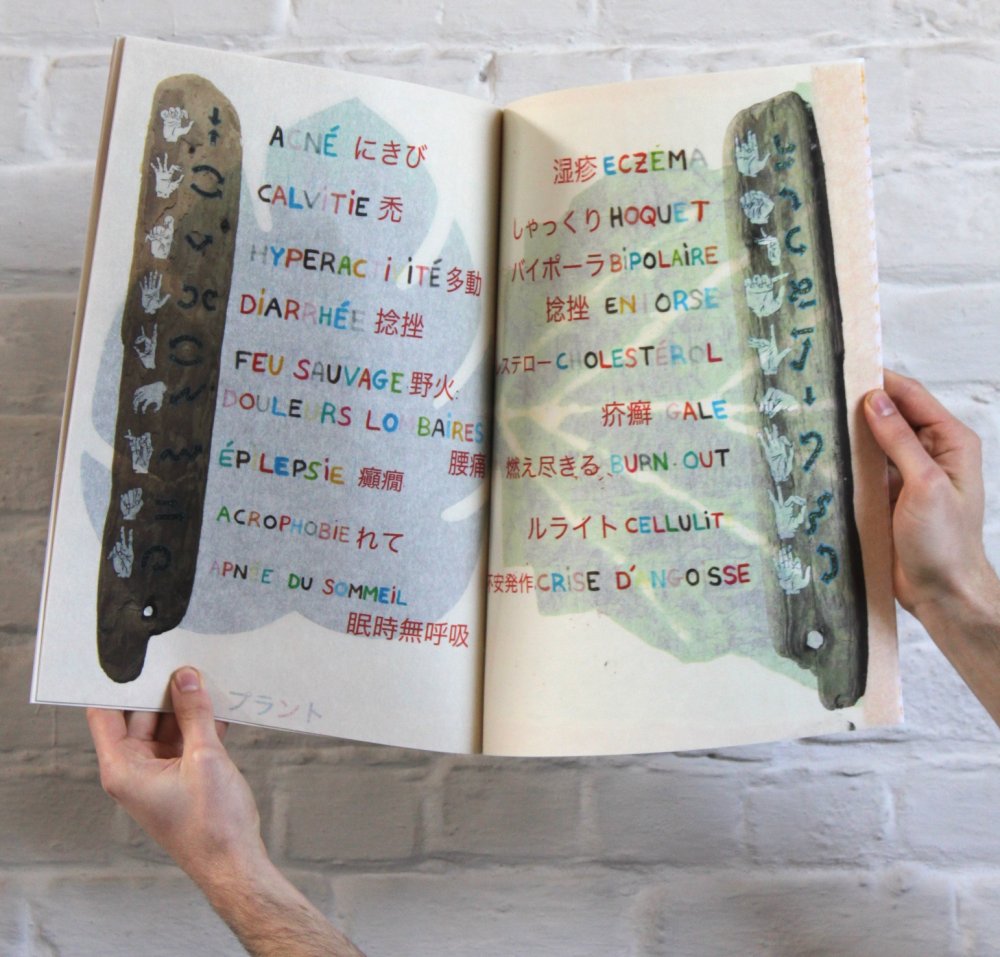 ACNÉ にきび
CALVITIE 禿
HYPERACTIVITÉ 多動
DIARRHÉE 捻挫
FEU SAUVAGE 野火
DOULEURS LOMBAIRES
腰痛
ÉPILEPSIE 癲癇
ACROPHOBIE れて
APNÉE DU SOMMEIL
眠時無呼吸
プラント
湿疹 ECZÉMA
しゃっくり HOQUET
バイポーラ BIPOLAIRE
捻挫 ENTORSE
ステロー CHOLESTÉROL
疥癬 GALE
燃え尽きる BURN-OUT
ルライト CELLULIT
不安発作 CRISE D'ANGOISSE